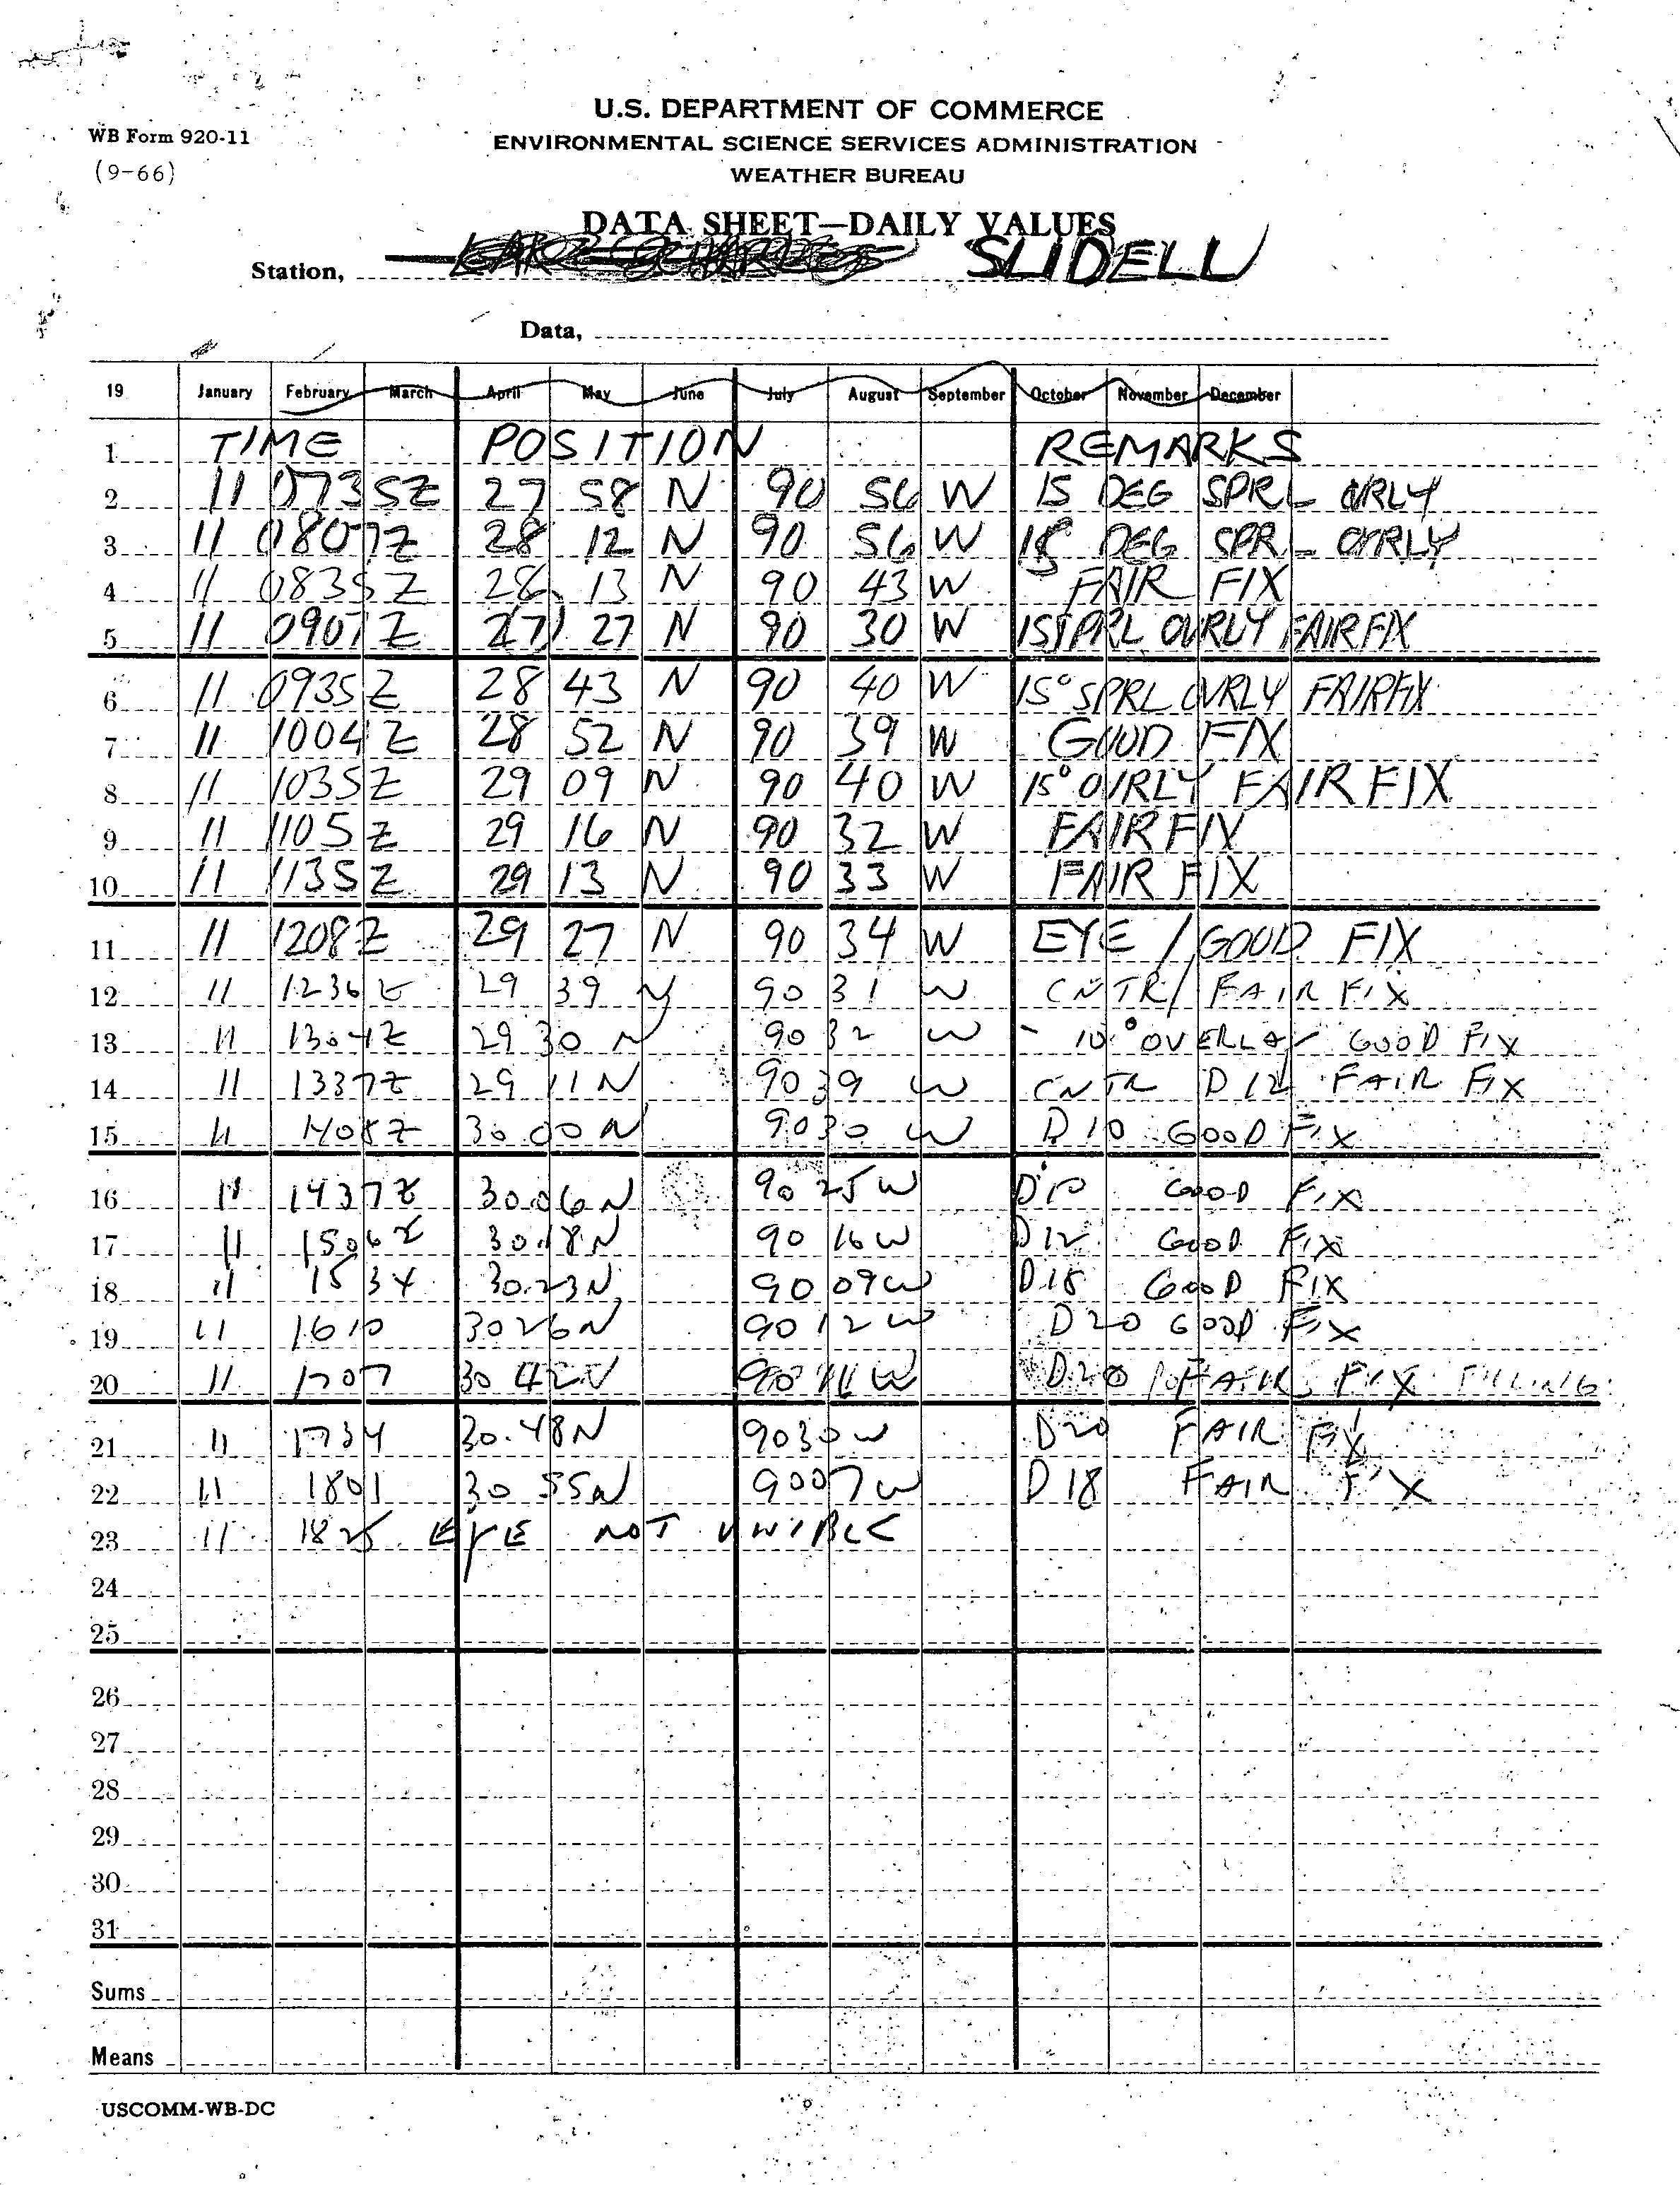 U.S. DEPARTMENT OF COMMERCE
WB Form 920-11
ENVIRONMENTAL SCIENCE SERVICES ADMINISTRATION
(9-66)
WEATHER BUREAU
DATA SHEET—DAILY VALUES
Station, SLIDELL
Data,
19 January February March April May June July August September October November December
1 TIME POSITION REMARKS
2 11 0735Z 27 58 N 90 56 W 15 DEG SPRL OVRLY
3 11 0807Z 28 12 N 90 56 W DEG SPRL OVRLY
4 11 0835Z 28 13 N 90 43 W FAIR FIX
5 11 0907Z 27 N 90 30 W 15 SPRL OVRLY FAIR FIX
6 11 0935Z 28 43 N 90 40 W 15° SPRL OVRLY FAIR FIX
7 11 1004Z 28 52 N 90 39 W GOOD FIX
8 11 1035Z 29 09 N 90 40 W 15° OVRLY FAIR FIX
9 11 1105Z 29 16 N 90 32 W FAIR FIX
10 11 1135Z 29 13 N 90 33 W FAIR FIX
11 11 1208Z 29 27 N 90 34 W EYE / GOOD FIX
12 11 1236Z 29 39 N 90 31 W CNTR/ FAIR FIX
13 11 1304Z 29 30 N 90 32 W - 10° OVERLAY GOOD FIX
14 11 1337Z 29 11 N 90 39 W CNTR D 12 FAIR FIX
15 11 1408Z 30 00 N 90 30 W D 10 GOOD FIX
16 11 1437Z 30.06 N 90 25 W D10 GOOD FIX
17 11 1506Z 30.18 N 90 16 W D12 GOOD FIX
18 11 1534 30.23 N 90 09 W D18 GOOD FIX
19 11 1610 30 26 N 90 12 W D20 GOOD FIX
20 11 1707 30 42 N 90 W D20 FAIR FIX FILLING
21 11 1734 30.48 N 90 30 W D20 FAIR FIX
22 11 1801 30 55 N 90 07 W D 18 FAIR FIX
23 11 1825 EYE NOT
24
25
26
27
28
29
30
31
Sums
Means
USCOMM-WB-DC